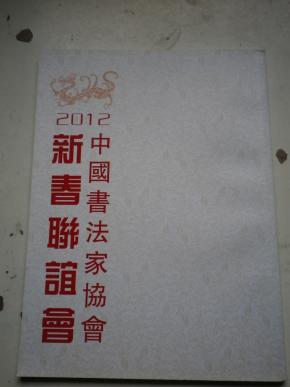 2012
中國書法家協會
新春聯誼會